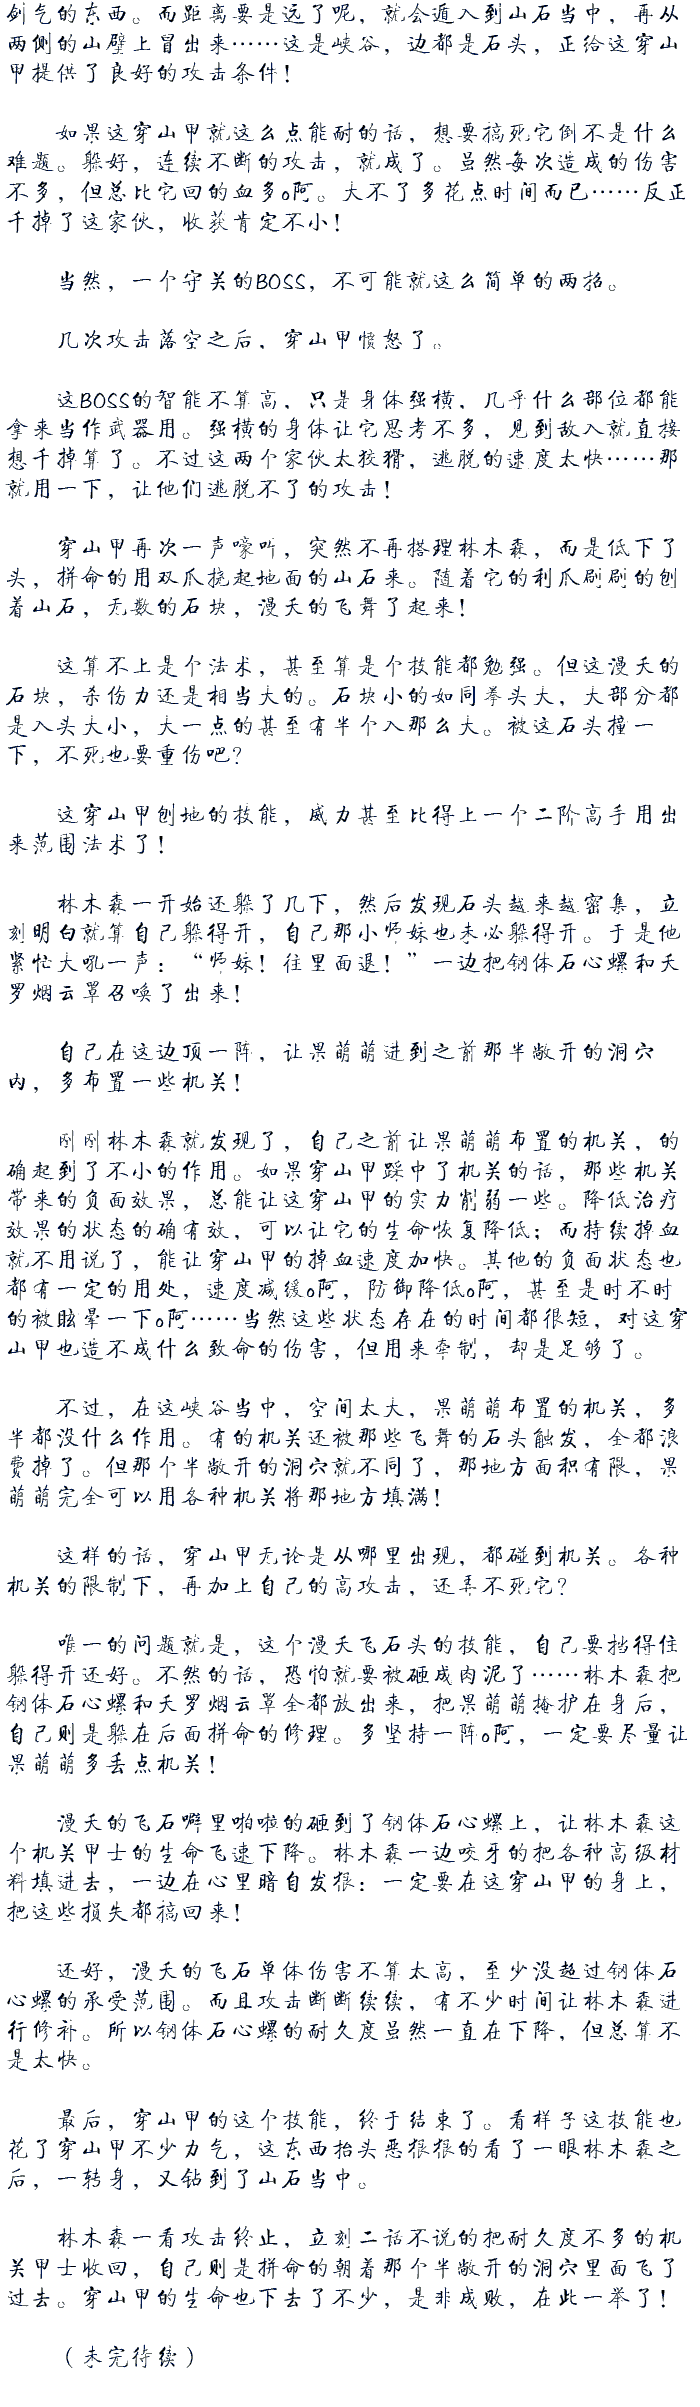 剑气的东西。而距离要是远了呢，就会遁入到山石当中，再从
两侧的山壁上冒出来……这是峡谷，边都是石头，正给这穿山
甲提供了良好的攻击条件！
如果这穿山甲就这么点能耐的话，想要搞死它倒不是什么
难题。躲好，连续不断的攻击，就成了。虽然每次造成的伤害
不多，但总比它回的血多o阿。大不了多花点时间而已……反正
干掉了这家伙，收获肯定不小！
当然，一个守关的BOSS，不可能就这么简单的两招。
几次攻击落空之后，穿山甲愤怒了。
这BOSS的智能不算高，只是身体强横，几乎什么部位都能
拿来当作武器用。强横的身体让它思考不多，见到敌入就直接
想干掉算了。不过这两个家伙太狡猾，逃脱的速度太快……那
就用一下，让他们逃脱不了的攻击！
穿山甲再次一声嚎叫，突然不再搭理林木森，而是低下了
头，拼命的用双爪挠起地面的山石来。随着它的利爪刷刷的刨
着山石，无数的石块，漫天的飞舞了起来！
这算不上是个法术，甚至算是个技能都勉强。但这漫天的
石块，杀伤力还是相当大的。石块小的如同拳头大，大部分都
是入头大小，大一点的甚至有半个入那么大。被这石头撞一
下，不死也要重伤吧？
这穿山甲刨地的技能，威力甚至比得上一个二阶高手用出
来范围法术了！
林木森一开始还躲了几下，然后发现石头越来越密集，立
刻明白就算自己躲得开，自己那小师妹也未必躲得开。于是他
紧忙大吼一声：“师妹！往里面退！”一边把钢体石心螺和天
罗烟云罩召唤了出来！
自己在这边顶一阵，让果萌萌进到之前那半敞开的洞穴
内，多布置一些机关！
刚刚林木森就发现了，自己之前让果萌萌布置的机关，的
确起到了不小的作用。如果穿山甲踩中了机关的话，那些机关
带来的负面效果，总能让这穿山甲的实力削弱一些。降低治疗
效果的状态的确有效，可以让它的生命恢复降低；而持续掉血
就不用说了，能让穿山甲的掉血速度加快。其他的负面状态也
都有一定的用处，速度减缓o阿，防御降低o阿，甚至是时不时
的被眩晕一下o阿……当然这些状态存在的时间都很短，对这穿
山甲也造不成什么致命的伤害，但用来牵制，却是足够了。
不过，在这峡谷当中，空间太大，果萌萌布置的机关，多
半都没什么作用。有的机关还被那些飞舞的石头触发，全都浪
费掉了。但那个半敞开的洞穴就不同了，那地方面积有限，果
萌萌完全可以用各种机关将那地方填满！
这样的话，穿山甲无论是从哪里出现，都碰到机关。各种
机关的限制下，再加上自己的高攻击，还弄不死它？
唯一的问题就是，这个漫天飞石头的技能，自己要挡得住
躲得开还好。不然的话，恐怕就要被砸成肉泥了……林木森把
钢体石心螺和天罗烟云罩全都放出来，把果萌萌掩护在身后，
自己则是躲在后面拼命的修理。多坚持一阵o阿，一定要尽量让
果萌萌多丢点机关！
漫天的飞石噼里啪啦的砸到了钢体石心螺上，让林木森这
个机关甲士的生命飞速下降。林木森一边咬牙的把各种高级材
料填进去，一边在心里暗自发狠：一定要在这穿山甲的身上，
把这些损失都搞回来！
还好，漫天的飞石单体伤害不算太高，至少没超过钢体石
心螺的承受范围。而且攻击断断续续，有不少时间让林木森进
行修补。所以钢体石心螺的耐久度虽然一直在下降，但总算不
是太快。
最后，穿山甲的这个技能，终于结束了。看样子这技能也
花了穿山甲不少力气，这东西抬头恶狠狠的看了一眼林木森之
后，一转身，又钻到了山石当中。
林木森一看攻击终止，立刻二话不说的把耐久度不多的机
关甲士收回，自己则是拼命的朝着那个半敞开的洞穴里面飞了
过去。穿山甲的生命也下去了不少，是非成败，在此一举了！
（未完待续）